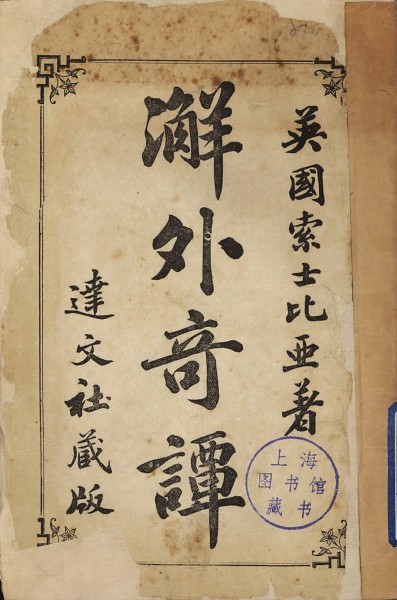 英國索士比亞著
澥外竒譚
達文社藏版
上海
图书馆
藏书